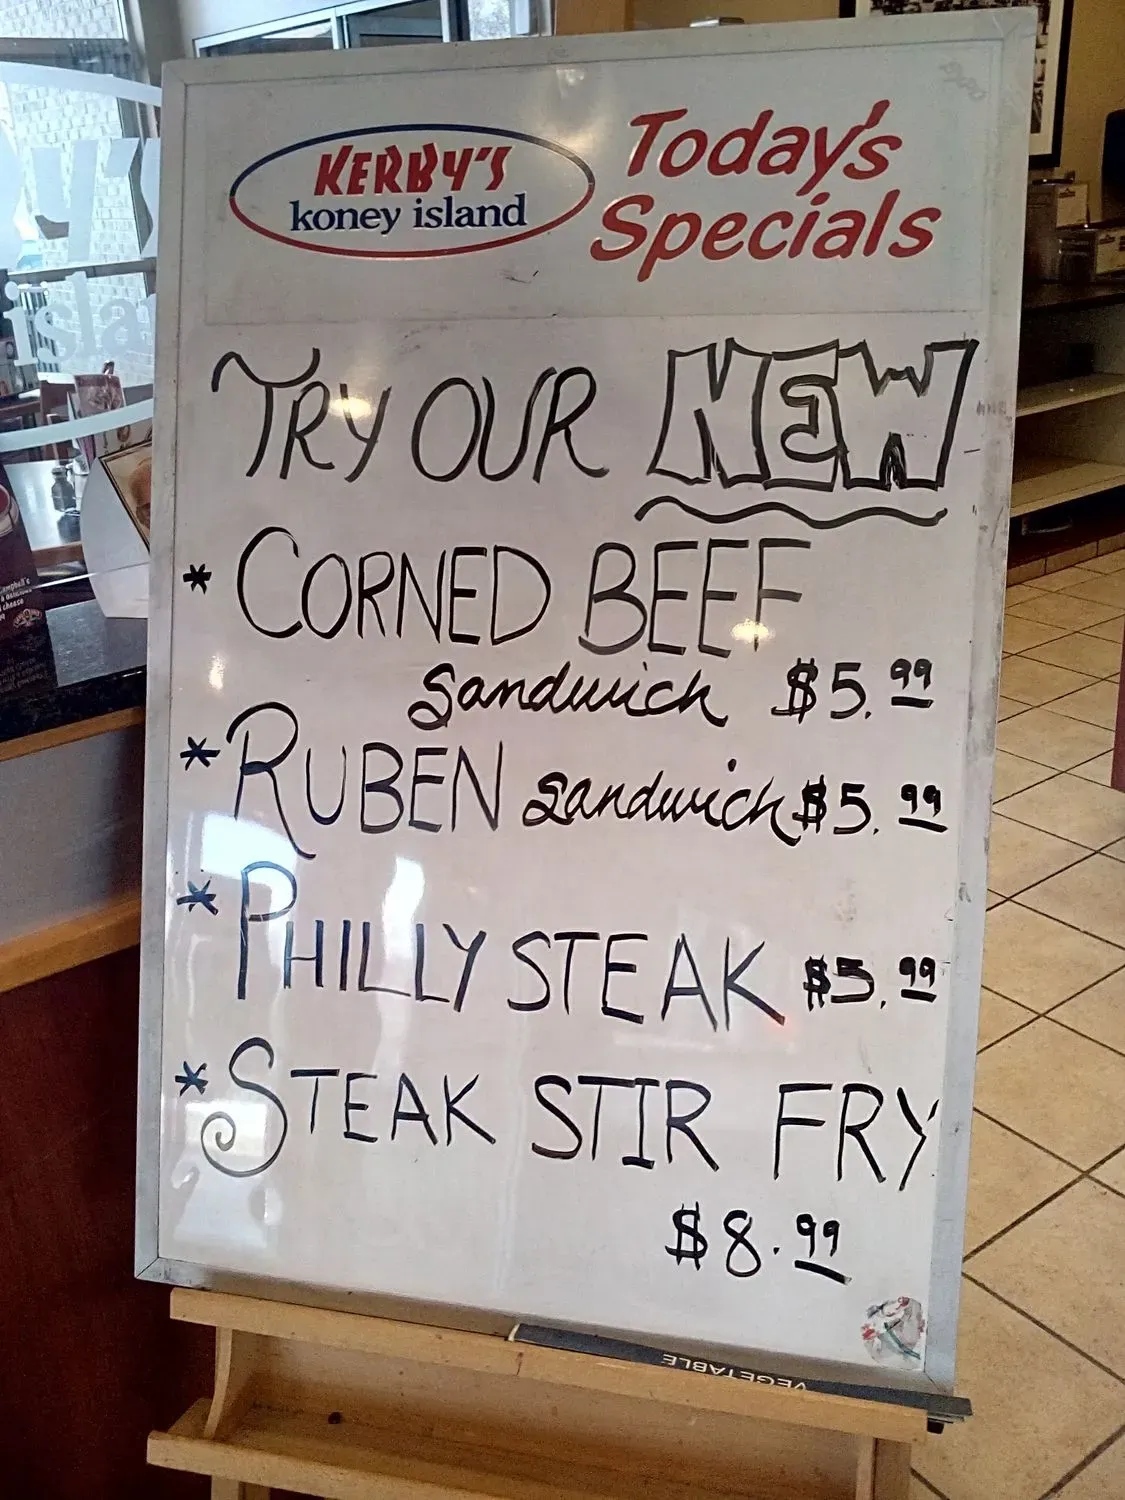 KERBY'S
koney island
Today's
Specials
TRY OUR NEW
* CORNED BEEF
Sandwich $5.99
* RUBEN Sandwich $5.99
* PHILLY STEAK $5.99
* STEAK STIR FRY
$8.99
VEGETABLE